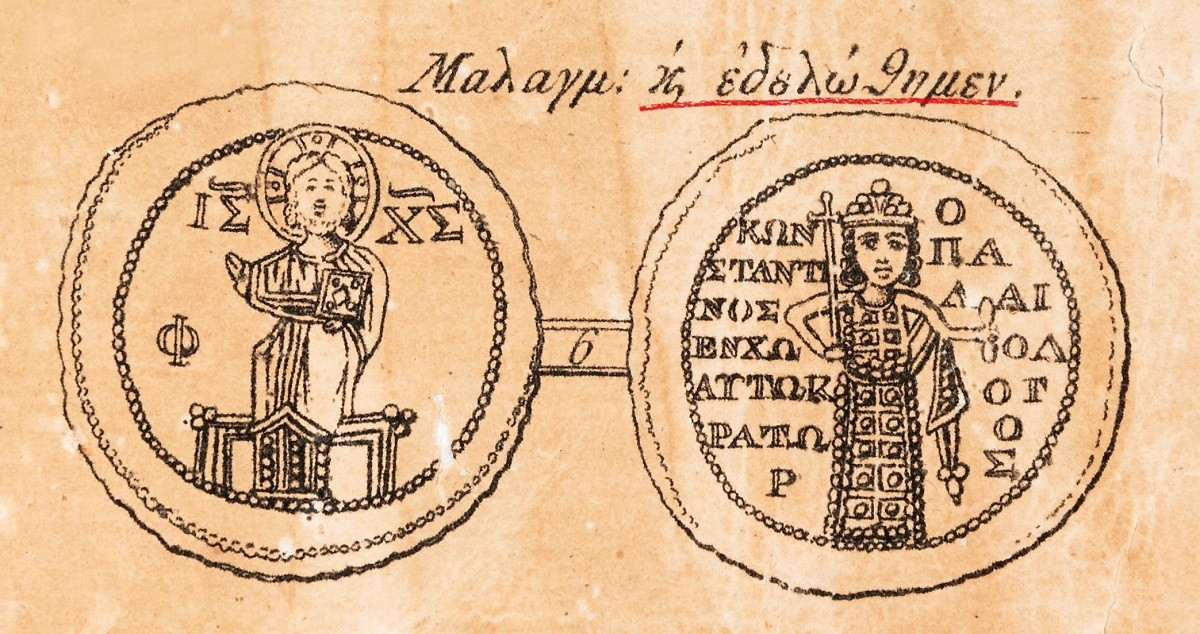 Μαλαγμ: ϗ́ ἐδȣλώθημεν.
ΙΣ ΧΣ
Φ
6
ΚΩΝ
ΣΤΑΝΤΙ
ΝΟΣ
ΕΝΧΩ
ΑΥΤΩΚ
ΡΑΤΩ
Ρ
Ο
ΠΑ
ΛΑΙ
ΟΛ
ΟΓ
Ο
Σ